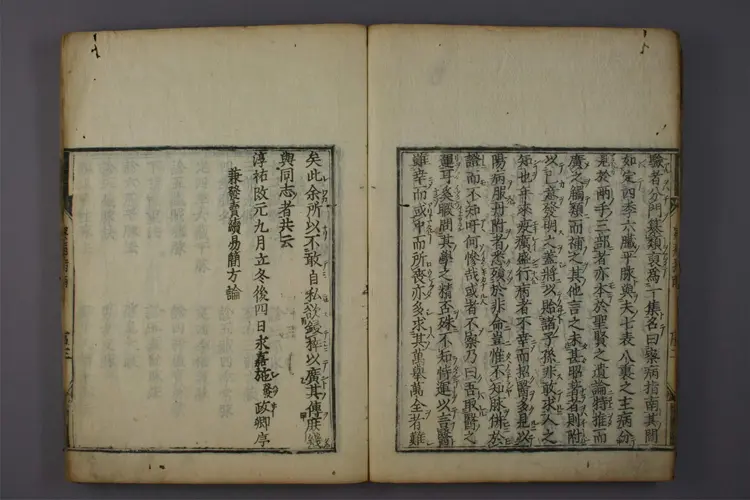 驗者分門纂類裒為一集名曰察病指南其間
如定四季六臟平脉與夫七表八裏之主病分
見於兩手三部者亦本於聖賢之遺論特推而
廣之觸類而補之其他言之未甚昭著者則附
以己意發明之蓋將以貽諸子孫非敢求人之
知也年來疫癘盛行病者不幸而招醫多見以
陽病服附者悉殞於非命豈惟不知脉併於
證而不知吁何慘哉或者不察乃曰吾取醫之
運耳奚暇問其學之精否殊不知恃運以言醫
雖幸而或中而所喪亦多求其萬舉萬全者難
矣此余所以不敢自私欲鋟梓以廣其傳庶
與同志者共云
淳祐改元九月立冬後四日永嘉施發政卿序
兼擊賣續易簡方論